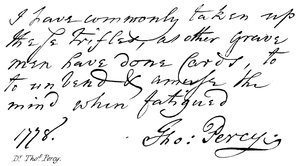 I have commonly taken up
these Trifles, as other grave
men have done Cards, to
to unbend & amuse the
mind when fatigued
1778. Tho: Percy.
Dr. Thos. Percy.